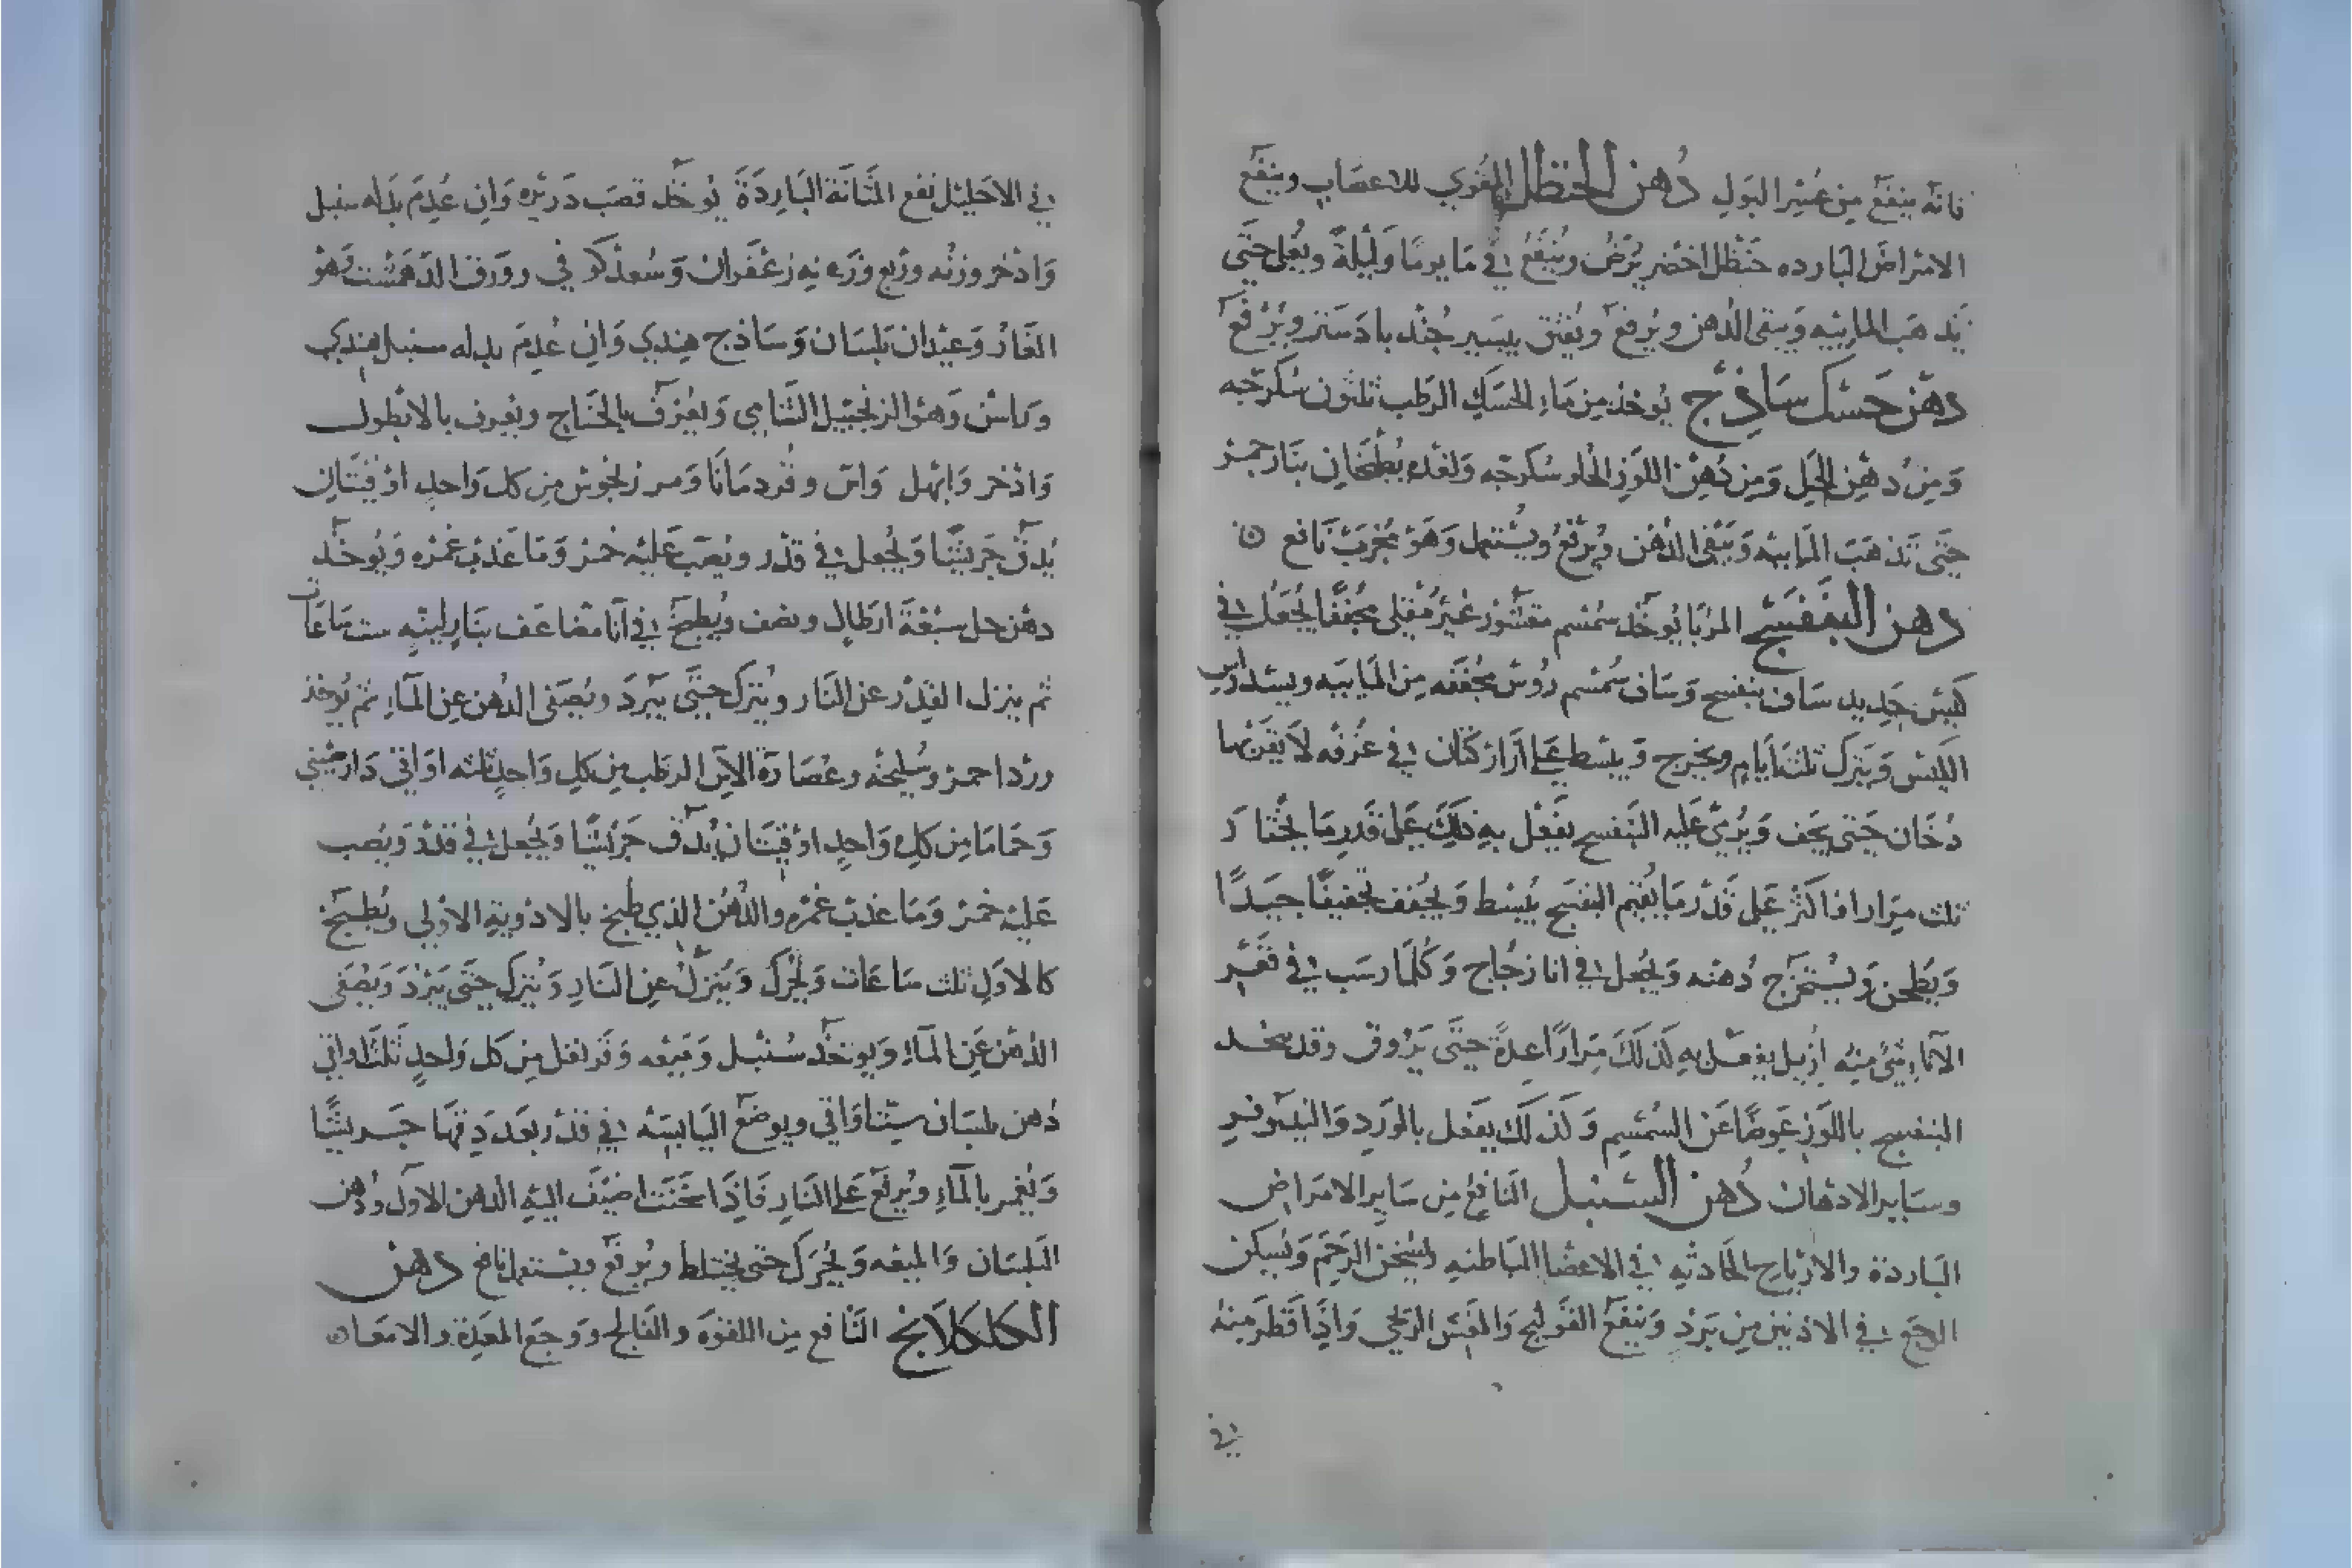 فانه ينفع من عسر البول دُهن الحنظل المقوي للاعصاب وينفع
الامراض البارده حنظل اخضر يُرَضُ ويُنقَعُ في مَا يومًا وَليْلةً ويُغلى حَتى
يَذهَب المايِيه وَيبقى الدُهن ويُرفعَ ويُفتق بيَسير جُند بادَستر ويُرْفع
دهن حسك سَاذِج يُوخذ مِن مَاءِ الحسَكِ الرَطب ثلثون سُكرجه
وَمِن دُهنِ الحَل وَمِن دُهن اللوَزِ الحلو سُكرجه وَاحده يُطبَخان بنَار جمر
حَتى تذهَبَ المَاييه وَيَبْقى الدُهن ويُرْفَعُ ويُسْتعمل وَهوَ مجُرَبٌ نَافع
دهن البنفسج المُربَا يُوخَذ سُمْسم مقشور غَير مُقلى مجُففًا يُجعَل في
كيس جَديد ساف بنفسج وَساف سُمْسم رُوس مجُففه مِن المَاييه ويسَد راس
الكيس وَيترك ثلثة ايَامٍ ويخرج وَيبسَط عَلى اَزار كتان في غرفه لا يَقربَها
دُخان حَتى يجَف وَيُرمىَ عَليه البَنفسج يفعَل بهِ ذلِكَ عَلى قَدرِ مَا يختَار
ثلث مِرَار اوَاكثر عَلى قَدْر مَا يُقيم البَنفسَج يُبسَط وَيُجفف تجفيفًا جيَدًا
وَيَطحن وَيُسْتخرَج دُهنه وَيجُعل في انا زجُاج وَكُلمَا رسَب في قعر
الآناءِ شيُ مِنه اُزيل يفعَل بهِ كذلَكَ مِرارًا عِدةً حتىَ يَرُوق وقد يتخذ
البنفسج باللوَزِ عِوضًا عَن السُمسِم وَكذلَك يفعَل بالوَردِ وَالنيلوفر
وسَايرِ الادهَان دُهن السنبل النَافعُ مِن سَايرِ الامرَاض
البَاردَة والارْيَاح الحَادثه في الاعضا البَاطنه ويُسخن الرَحم وَيُسكن
الوجَع في الاذنين مِن بَردٍ وَيَنفعَ القولنج وَالمغس الريحي وَاذَا قطرَ مِنه
في
في الاحليل نفع المثَانَة البَارِدَةَ يُوخَذ قصَب ذَريرَه وَانِ عُدِمَ بدَله سنبل
وَاذخر وزنه وَربع وَزنه زعْفَران وَسُعد كوفي وورَق الدَهمشت وَهو
الغَار وَعيدَان بَلسَان وَسَاذج هِندِي وَانِ عُدِمَ بدله سنبل هندي
وراسَن وَهوَ الزنجبيل الشَامِي وَيعُرَف بالجنَاح ويُعرف بالابطول
وَاذخر وَابهل وَاس وقُردمَانَا وَمرزنجوش مِن كل وَاحدٍ اوْقيتَانِ
يُدق جَريشًا وَيجُعل في قدر ويُصَب عَليه خمر وَمَا عَذب غمره وَيُوخَذ
دهن حل سَبْعَة ارطالٍ ونصف ويُطبخَ في انا مضَاعَف بنَارٍ لينه ست سَاعَات
ثم ينزل القدر عن النَار ويُترَك حتىَ يَبرَدَ ويُصَفى الدُهن عن المَاءِ ثم يُوخذ
ورد احمر وسُليخه وعُصَارة الاس الرطب مِن كلِ وَاحدٍ ثلثه اوَاقي دَارصيني
وَحمَامَا مِن كلِ وَاحدٍ اوْقيتَان يُدق جَريشًا وَيجُعل في قدر وَيُصب
عَليه خمر وَمَا عذب غمره والدُهن الذي طبخ بالادويةِ الاوُلي ويُطبَخ
كالاوَلِ ثلث سَاعَات وَيحُرك وَيُنزلُ عن النَارِ وَيُترك حتىَ يَبردَ وَيُصَفى
الدُهن عَن المَاءِ وَيوخَذ سُنبل وَمَيعه وَقرنفل مِن كل وَاحدٍ ثلث اوَاقي
دُهن بلسَان ست اوَاقي ويوضَع اليَابسَه في قدر بعَد دَقهَا جَريشًا
وَيُغمر بالماءِ ويُرفعَ عَلى النَارِ فَاذَا سخنَت اضيَف اليهِ الدهن الاوَل وَدُهن
البَلسَان وَالميعَه وَيُحرَك حتى يختلط ويُرفعَ ويُستعمل نافع دهن
الكلكلانج النَافع مِن اللقوَه والفَالج ووَجعَ المعدَة والامعَاء